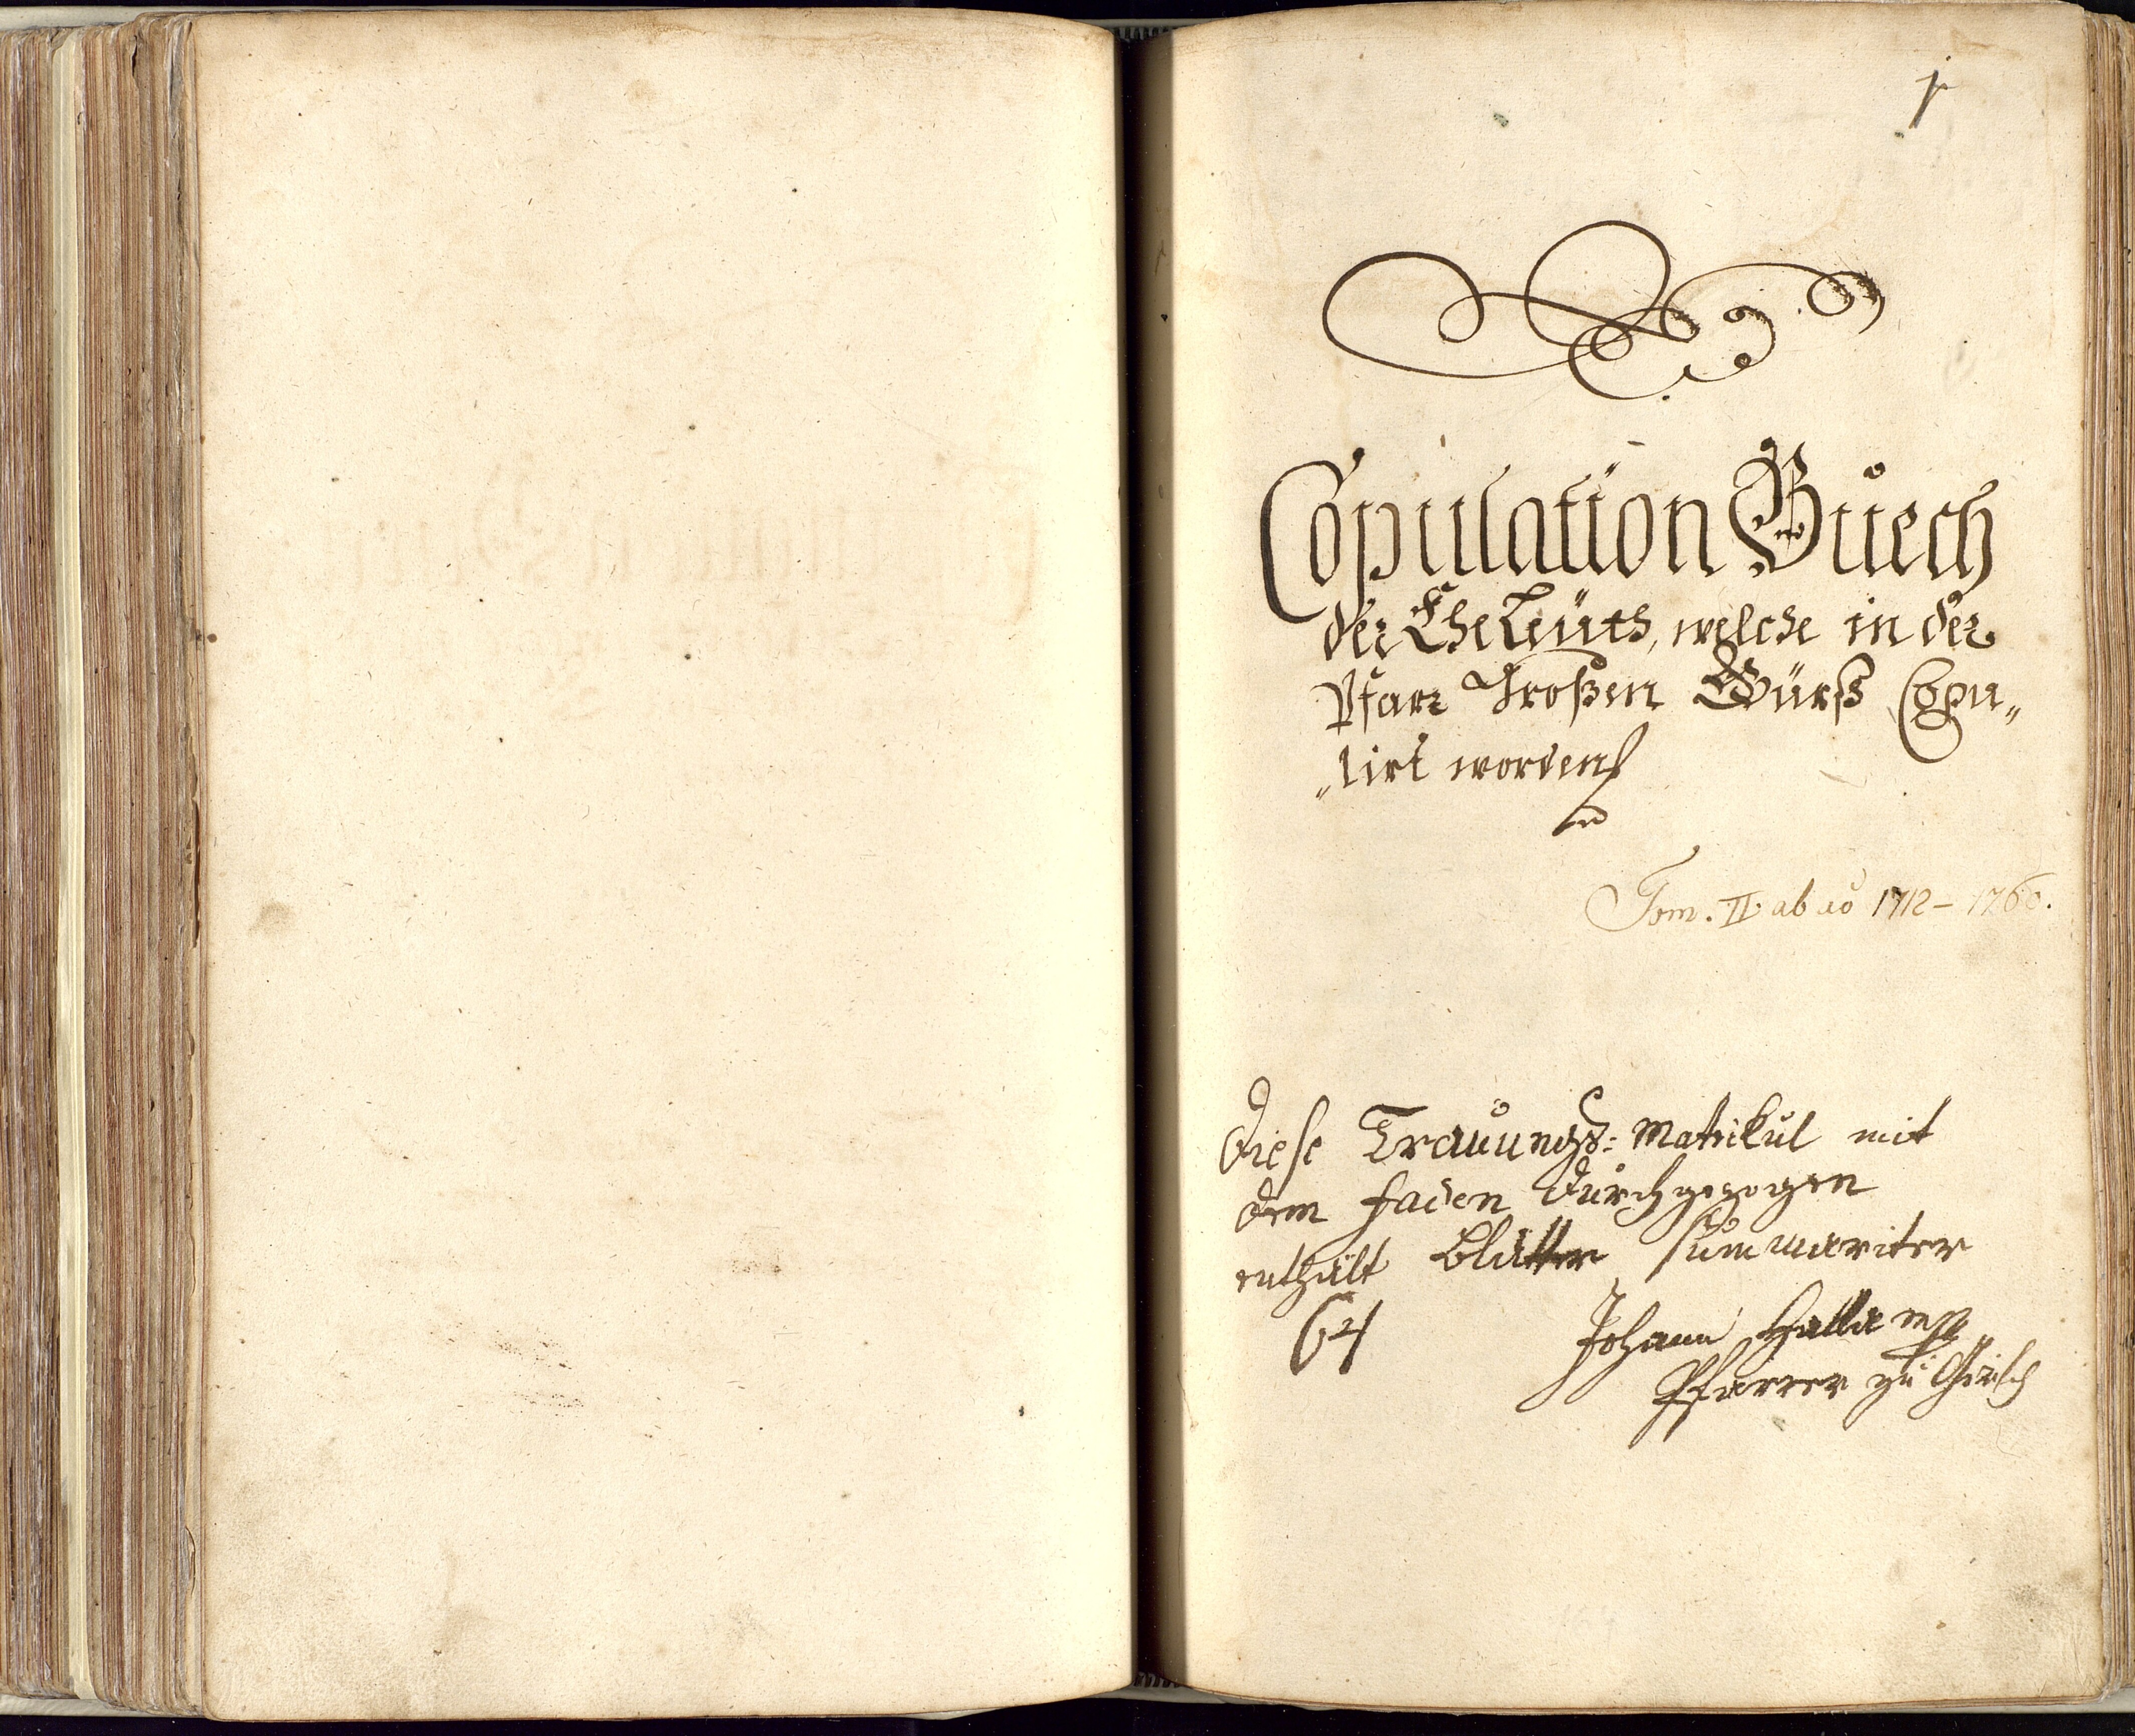 1
Copulation Buech
der Ehe Leüth, welche in der
Pfarr Großen Gürß Copu„
„lirt worden
Tom. II ab ao 1712 – 1760.
Diese Trauungs: Matrikul mit
dem Faden durchgezogen
enthält Blätter summariter
64
Johann Halla mp
Pfarrer zu Girsch